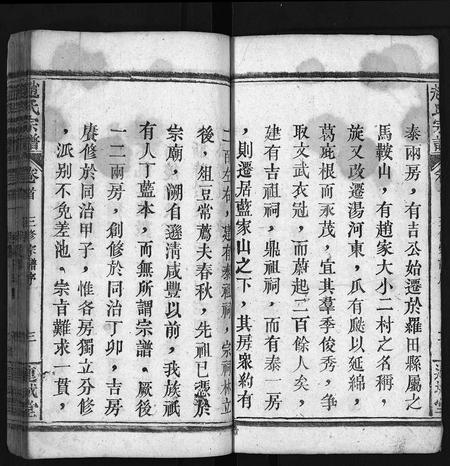 泰兩房，有吉公始遷於羅田縣屬之
馬鞍山，有趙家大小二村之名稱，
旋又改遷湯河東，瓜有瓞以延綿，
葛庇根而永茂，宜其羣季俊秀，爭
取文武衣冠，而蔚起二百餘人矣，
建有吉祖祠，鼎祖祠，而有泰一房
，則遷居藍家山之下，其房衆約有
二百左右，建有泰祖祠，宗祠林立
後，俎豆常薦夫春秋，先祖已憑於
宗廟，溯自遜清咸豐以前，我族祇
有人丁藍本，而無所謂宗譜。厥後
一二兩房，創修於同治丁卯，吉房
賡修於同治甲子，惟各房獨立分修
，派别不免差池。宗旨難求一貫，
趙氏宗譜 卷首 三修宗譜序 三 連城堂